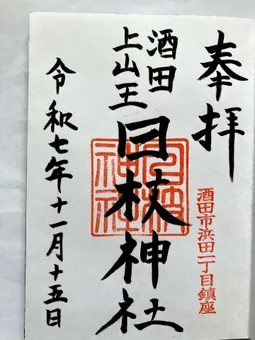 奉拝
酒田市浜田一丁目鎮座
酒田
上山王
日枝神社
日枝神社
令和七年十一月十五日